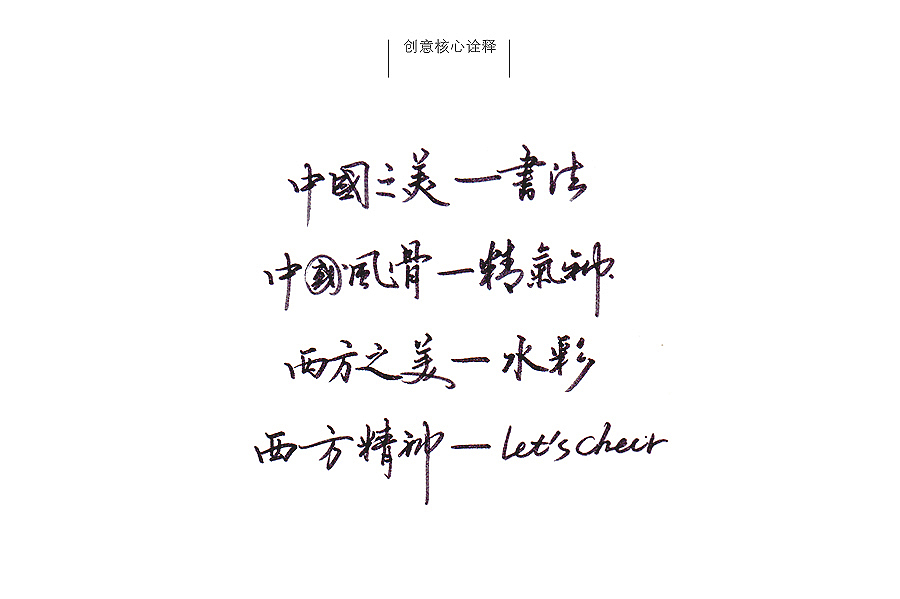 创意核心诠释
中國之美一書法
中國風骨一精氣神
西方之美一水彩
西方精神一let's cheir